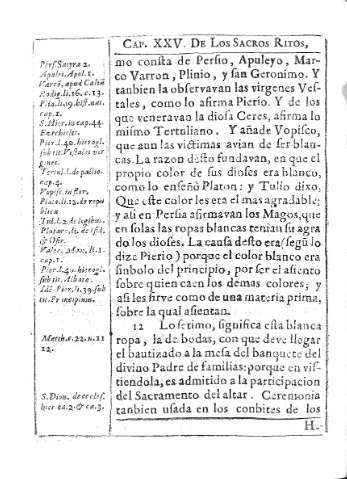 CAP. XXV. DE LOS SACROS RITOS,
mo consta de Persio, Apuleyo, Mar-
co Varron, Plinio, y san Geronimo. Y
tanbien la observavan las virgenes Ves-
tales, como lo afirma Pierio. Y de los
que veneravan la diosa Ceres, afirma lo
mismo Tertuliano. Y añade Vopisco,
que aun las victimas avian de ser blan-
cas. La razon desto fundavan, en que el
propio color de sus dioses era blanco,
como lo enseñò Platon; y Tulio dixo,
Que este color les era el mas agradable;
y asi en Persia afirmavan los Magos, que
en solas las ropas blancas tenian su agra
do los dioses. La causa desto era (segũ lo
dize Pierio) porque el color blanco era
sinbolo del principio, por ser el asiento
sobre quien caen los demas colores; y
asi les sirve como de una materia prima,
sobre la qual asientan.
12 Lo setimo, significa esta blanca
ropa, la de bodas, con que deve llegar
el bautizado a la mesa del banquete del
divino Padre de familias: porque en vis-
tiendola, es admitido a la participacion
del Sacramento del altar. Ceremonia
tanbien usada en los conbites de los
H-
Pers. Satyra 2.
Apulei. Apol. 1.
Varrõ, apud Caliũ
Rodig. li. 16. c. 13.
Plin. li. 19. hist. nat.
cap. 1.
S. Hier. in cap. 44.
Ezechielis.
Pier. l. 40. hierogl.
sub tit. Vestales vir
gines.
Tertul. l. de pallio.
cap. 4.
Vopisc. in flor.
Plato. li. 12. de repu
blica
Tul. l. 2. de legibus.
Plutar. li. de Isid.
& Osir.
Valer. Max. li. 1.
cap. 1.
Pier. l. 40. hierogl.
sub tit. Albata.
Idẽ Pier. li. 39. sub
tit.
Matth. c. 22. n. 11
12.
S. Dion. de eccles.
hier ca. 2. & ca. 3.